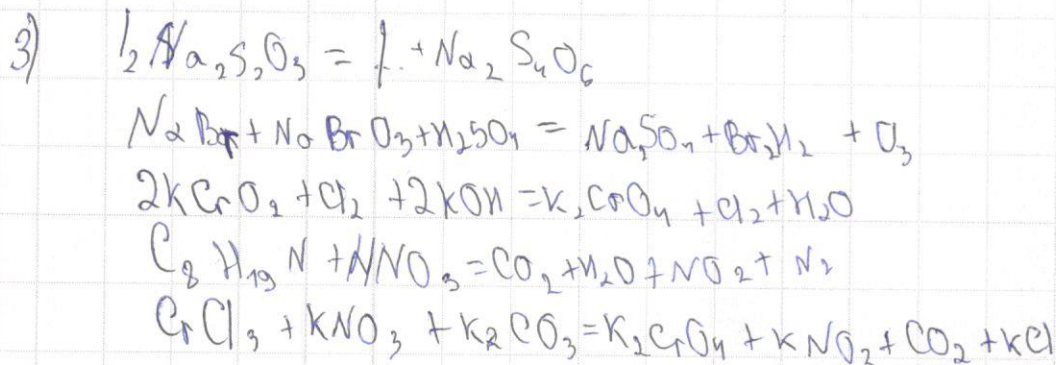 3) I₂ Na₂S₂O₃ = I. + Na₂S₄O₆
NaBr + NaBrO₃ + H₂SO₄ = Na₂SO₄ + Br₂H₂ + O₃
2KCrO₂ + Cl₂ + 2KOH = K₂CrO₄ + Cl₂ + H₂O
C₈H₁₉N + HNO₃ = CO₂ + H₂O + NO₂ + N₂
CrCl₃ + KNO₃ + K₂CO₃ = K₂CrO₄ + KNO₂ + CO₂ + KCl